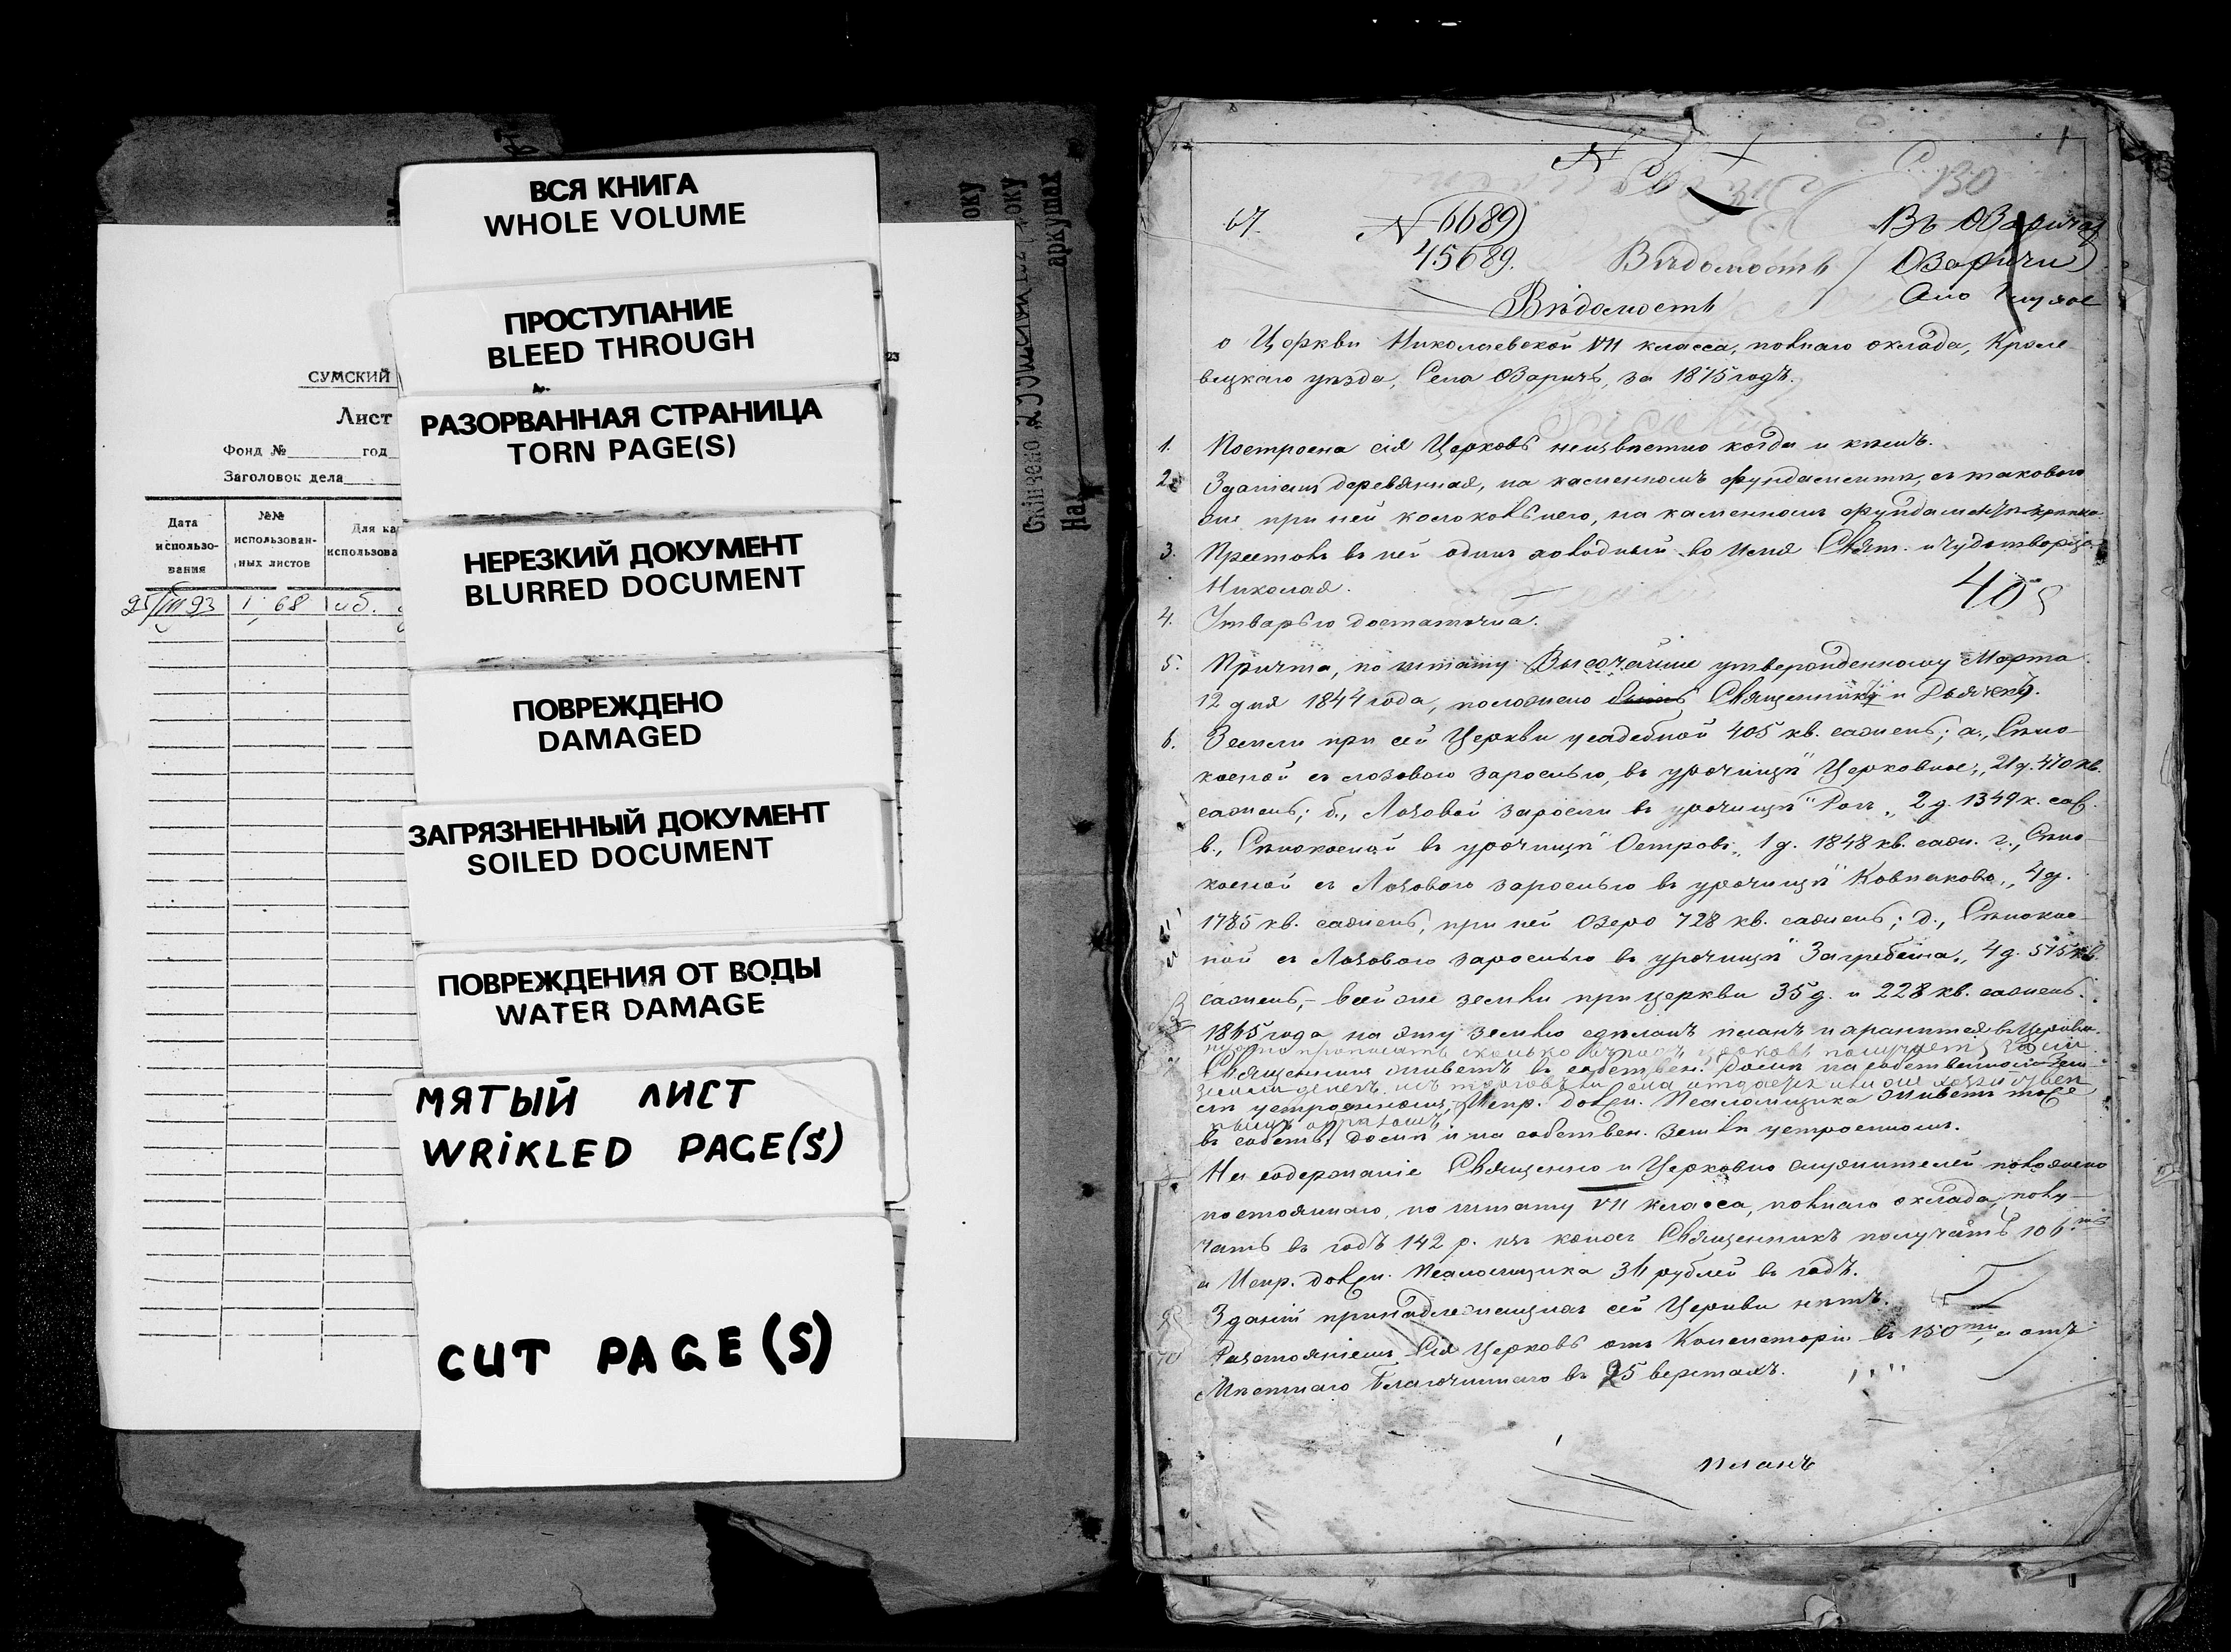 СУМСКИЙ
Лист
Фонд № год
Заголовок дела
Дата использо-вания
№№ использован-ных листов
Для ка
использова
25/III 93 1, 68
ВСЯ КНИГА
WHOLE VOLUME
ПРОСТУПАНИЕ
BLEED THROUGH
РАЗОРВАННАЯ СТРАНИЦА
TORN PAGE(S)
НЕРЕЗКИЙ ДОКУМЕНТ
BLURRED DOCUMENT
ПОВРЕЖДЕНО
DAMAGED
ЗАГРЯЗНЕННЫЙ ДОКУМЕНТ
SOILED DOCUMENT
ПОВРЕЖДЕНИЯ ОТ ВОДЫ
WATER DAMAGE
МЯТЫЙ ЛИСТ
WRiKLED PAGE(S)
CUT PAGE(S)
оку
оку
аркушах
На
1
67. N 6689 Въ Озаричах
45689. Вѣдомость Озаричи
Вѣдомость
о Церкви Николаевской VII класса, полнаго оклада, Кроле-
вецкаго уѣзда, Села Озаричъ, за 1875 годъ.
1. Построена сія Церковь неизвѣстно когда и кѣмъ.
2. Зданіемъ деревянная, на каменномъ фундаментѣ, съ таковою
же при ней колокольнею, на каменномъ фундаментѣ крѣпка
3. Престолъ въ ней одинъ холодный во имя Свят. и Чудотворца
Николая.
405
4. Утварью достаточна.
5. Причта, по штату Высочайше утвержденному Марта
12 дня 1844 года, положено быть Священнику и Дьячку.
6. Земли при сей Церкви усадебной 405 кв. сажень; а., Сѣно-
косной съ лозовою зарослью, въ урочищѣ "Церковное", 21 д. 410 кв.
сажень; б., Лозовой заросли въ урочищѣ "Рогъ" 2 д. 1349 к. саж.
в., Сѣнокосной въ урочищѣ "Островъ" 1 д. 1848 кв. саж. г., Сѣно-
косной съ Лозовою зарослью въ урочищѣ "Ковпаково" 4 д.
1785 кв. сажень, при ней озеро 728 кв. сажень; д., Сѣнокос-
ной съ Лозовою зарослью въ урочищѣ "Загребенна" 4 д. 515 кв.
сажень, – всей же земли при церкви 35 д. и 228 кв. сажень.
1865 года на эту землю сдѣланъ планъ и хранится въ Церкви.
7. Священникъ живетъ въ собствен. домѣ на собственной зем-
лѣ устроенномъ, Испр. должн. Псаломщика живетъ тоже
въ собств. домѣ и на собствен. землѣ устроенномъ.
8. На содержаніе Священно и Церковно служителей положено
постояннаго, по штату VII класса, полнаго оклада, полу-
чать въ годъ 142 р. изъ коихъ Священникъ получаетъ 106
а Испр. должн. Псаломщика 36 рублей въ годъ.
9. Зданій принадлежащихъ сей Церкви нѣтъ.
10 Разстояніемъ Сія Церковь отъ Консисторіи въ 150, а отъ
Мѣстнаго Благочиннаго въ 25 верстахъ.
планъ